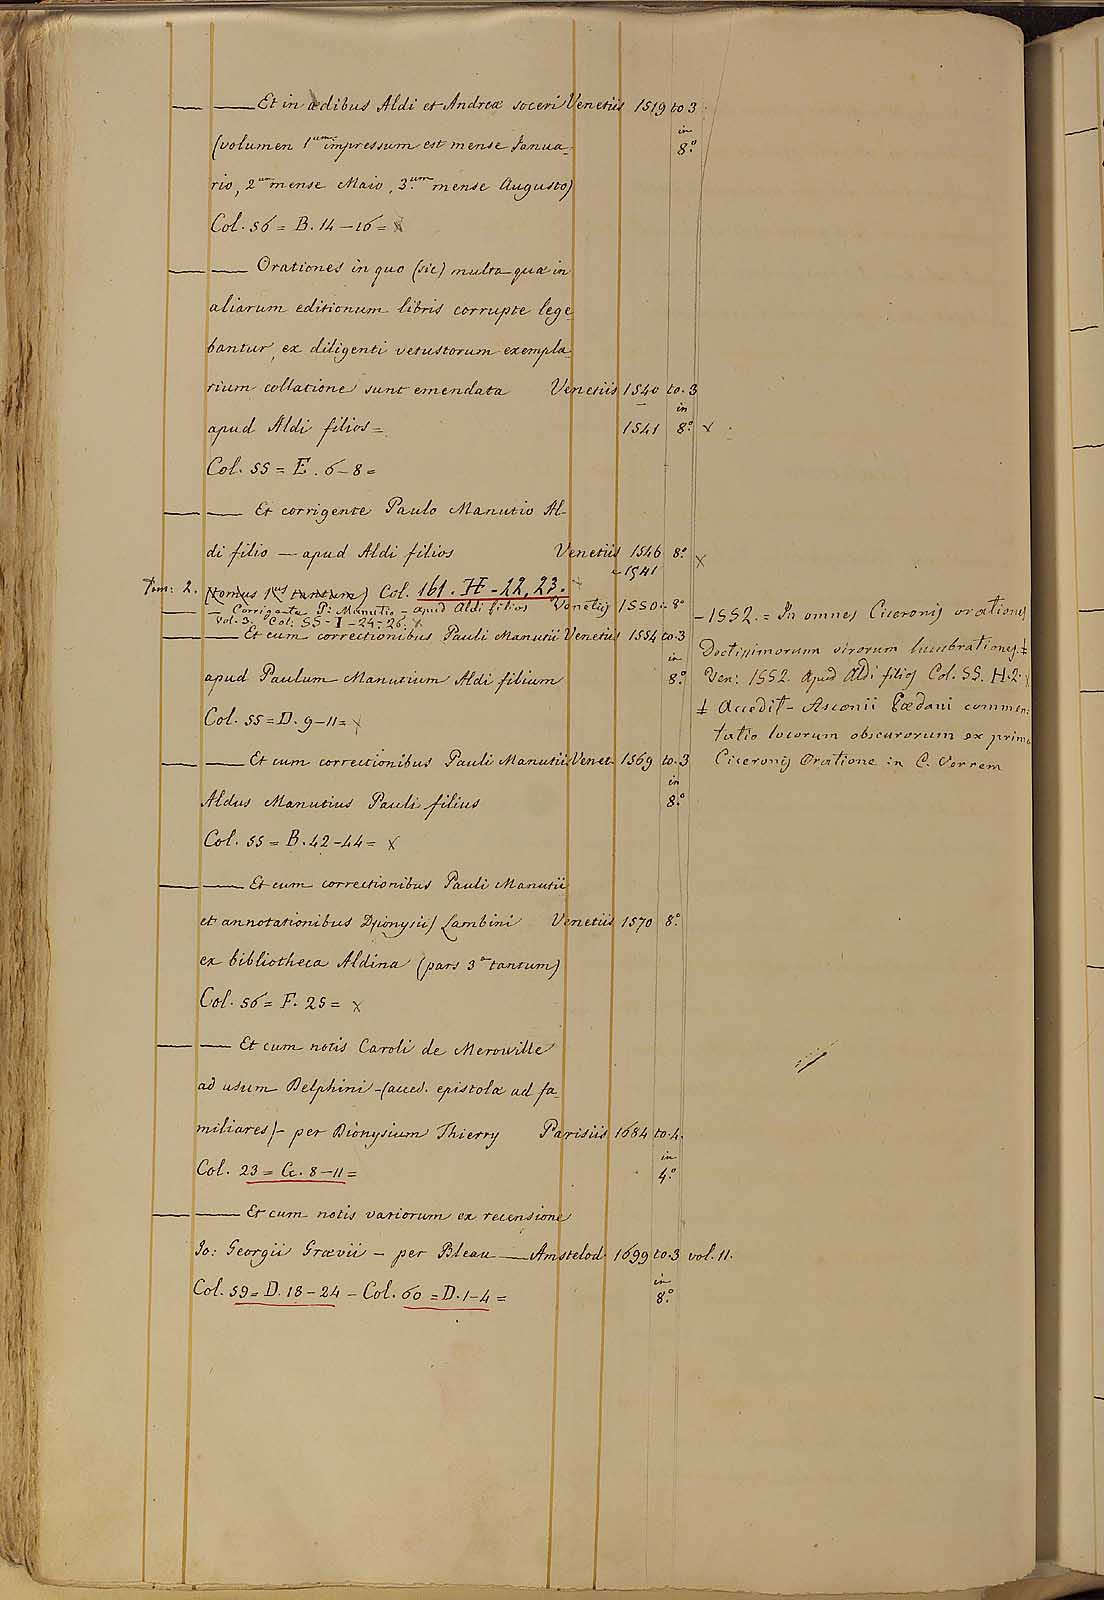 — — Et in ædibus Aldi et Andreæ soceri Venetiis 1519 to 3
(volumen 1um impressum est mense Janua- in 8.º
rio, 2um mense Maio, 3.um mense Augusto)
Col. 56 = B. 14 – 16 = x
— — Orationes in quo (sic) multa quæ in
aliarum editionum libris corrupte lege
bantur, ex diligenti vetustorum exempla
rium collatione sunt emendata Venetiis 1540 to. 3
in
apud Aldi filios = 1541 8.º x
Col. 55 = E. 6 – 8 =
— — Et corrigente Paulo Manutio Al-
di filio — apud Aldi filios Venetiis 1546 8.º x
– 1541
Tom: 2. (tomus 1us tantum) Col. 161. H – 22, 23.
— — Corrigente P: Manutio – apud Aldi filios Venetiis 1550. 8º
vol. 3. Col. 55 – I – 24 – 26. x
— — Et cum correctionibus Pauli Manutii Venetiis 1554 to. 3
in
apud Paulum Manutium Aldi filium 8.º
Col. 55 = D. 9 – 11 = x
— — Et cum correctionibus Pauli Manutii Venet. 1569 to. 3
in
Aldus Manutius Pauli filius 8.º
Col. 55 = B. 42 – 44 = x
— — Et cum correctionibus Pauli Manutii
et annotationibus Dionysii Lambini Venetiis 1570 8.º
ex bibliotheca Aldina (pars 3a tantum)
Col. 56 = F. 25 = x
— — Et cum notis Caroli de Merouille
ad usum Delphini – (acced. epistolæ ad fa-
miliares) – per Dionysium Thierry Parisiis 1684 to. 4.
in
Col. 23 = G. 8 – 11 = 4.º
— — Et cum notis variorum ex recensione
Jo: Georgii Grævii – per Bleau — Amstelod. 1699 to. 3 vol. 11.
in
Col. 59 = D. 18 – 24 – Col. 60 = D. 1 – 4 = 8.º
– 1552. = In omnes Ciceronis orationes
Doctissimorum virorum lucubrationes ‡
Ven: 1552. apud Aldi filios Col. 55. H. 2. x
‡ Accedit – Asconii Pædani commen:
tatio locorum obscurorum ex prima
Ciceronis Oratione in C. Verrem